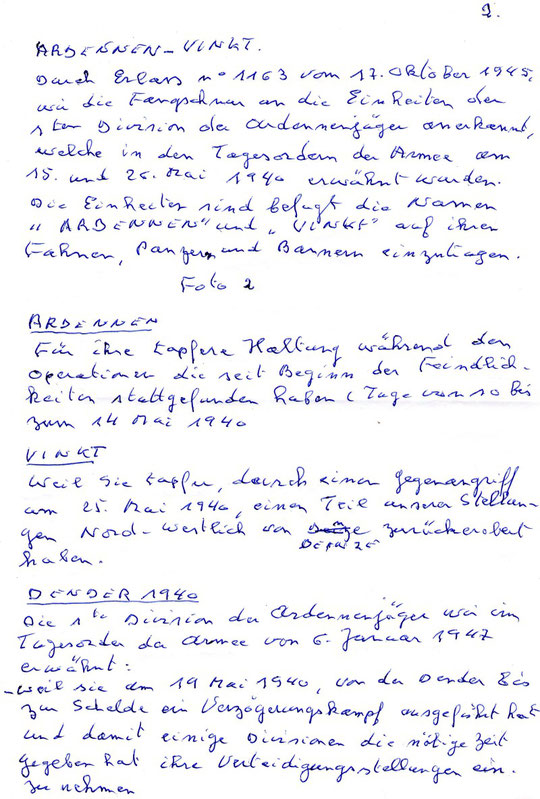 2.
ARDENNEN - VINKT.
Durch Erlass n° 1163 vom 17. Oktober 1945,
wir die Fangschnur an die Einheiten der
1ten Division der Ardennenjäger anerkannt,
welche in den Tagesordern der Armee am
15. und 26. Mai 1940 erwähnt wurden.
Die Einheiten sind befugt die Namen
„ARDENNEN" und „VINKT" auf ihren
Fahnen, Panzern und Bannern einzutragen.
Foto 2
ARDENNEN
Für ihre tapfere Haltung während den
Operationen die seit Beginn der Feindlich-
keiten stattgefunden haben (Tage von 10 bis
zum 14 Mai 1940
VINKT
Weil sie tapfer, durch einen Gegenangriff
am 25. Mai 1940, einen Teil unserer Stellun-
gen Nord-Westlich von zurückerobert
DEINZE
haben.
DENDER 1940
Die 1te Division der Ardennenjäger wir im
Tagesorder der Armee von 6. Januar 1947
erwähnt:
- Weil sie am 19 Mai 1940, von der Dender bis
zur Schelde ein Verzögerungskampf ausgeführt hat
und damit einige Divisionen die nötige Zeit
gegeben hat ihre Verteidigungsstellungen ein-
zu nehmen